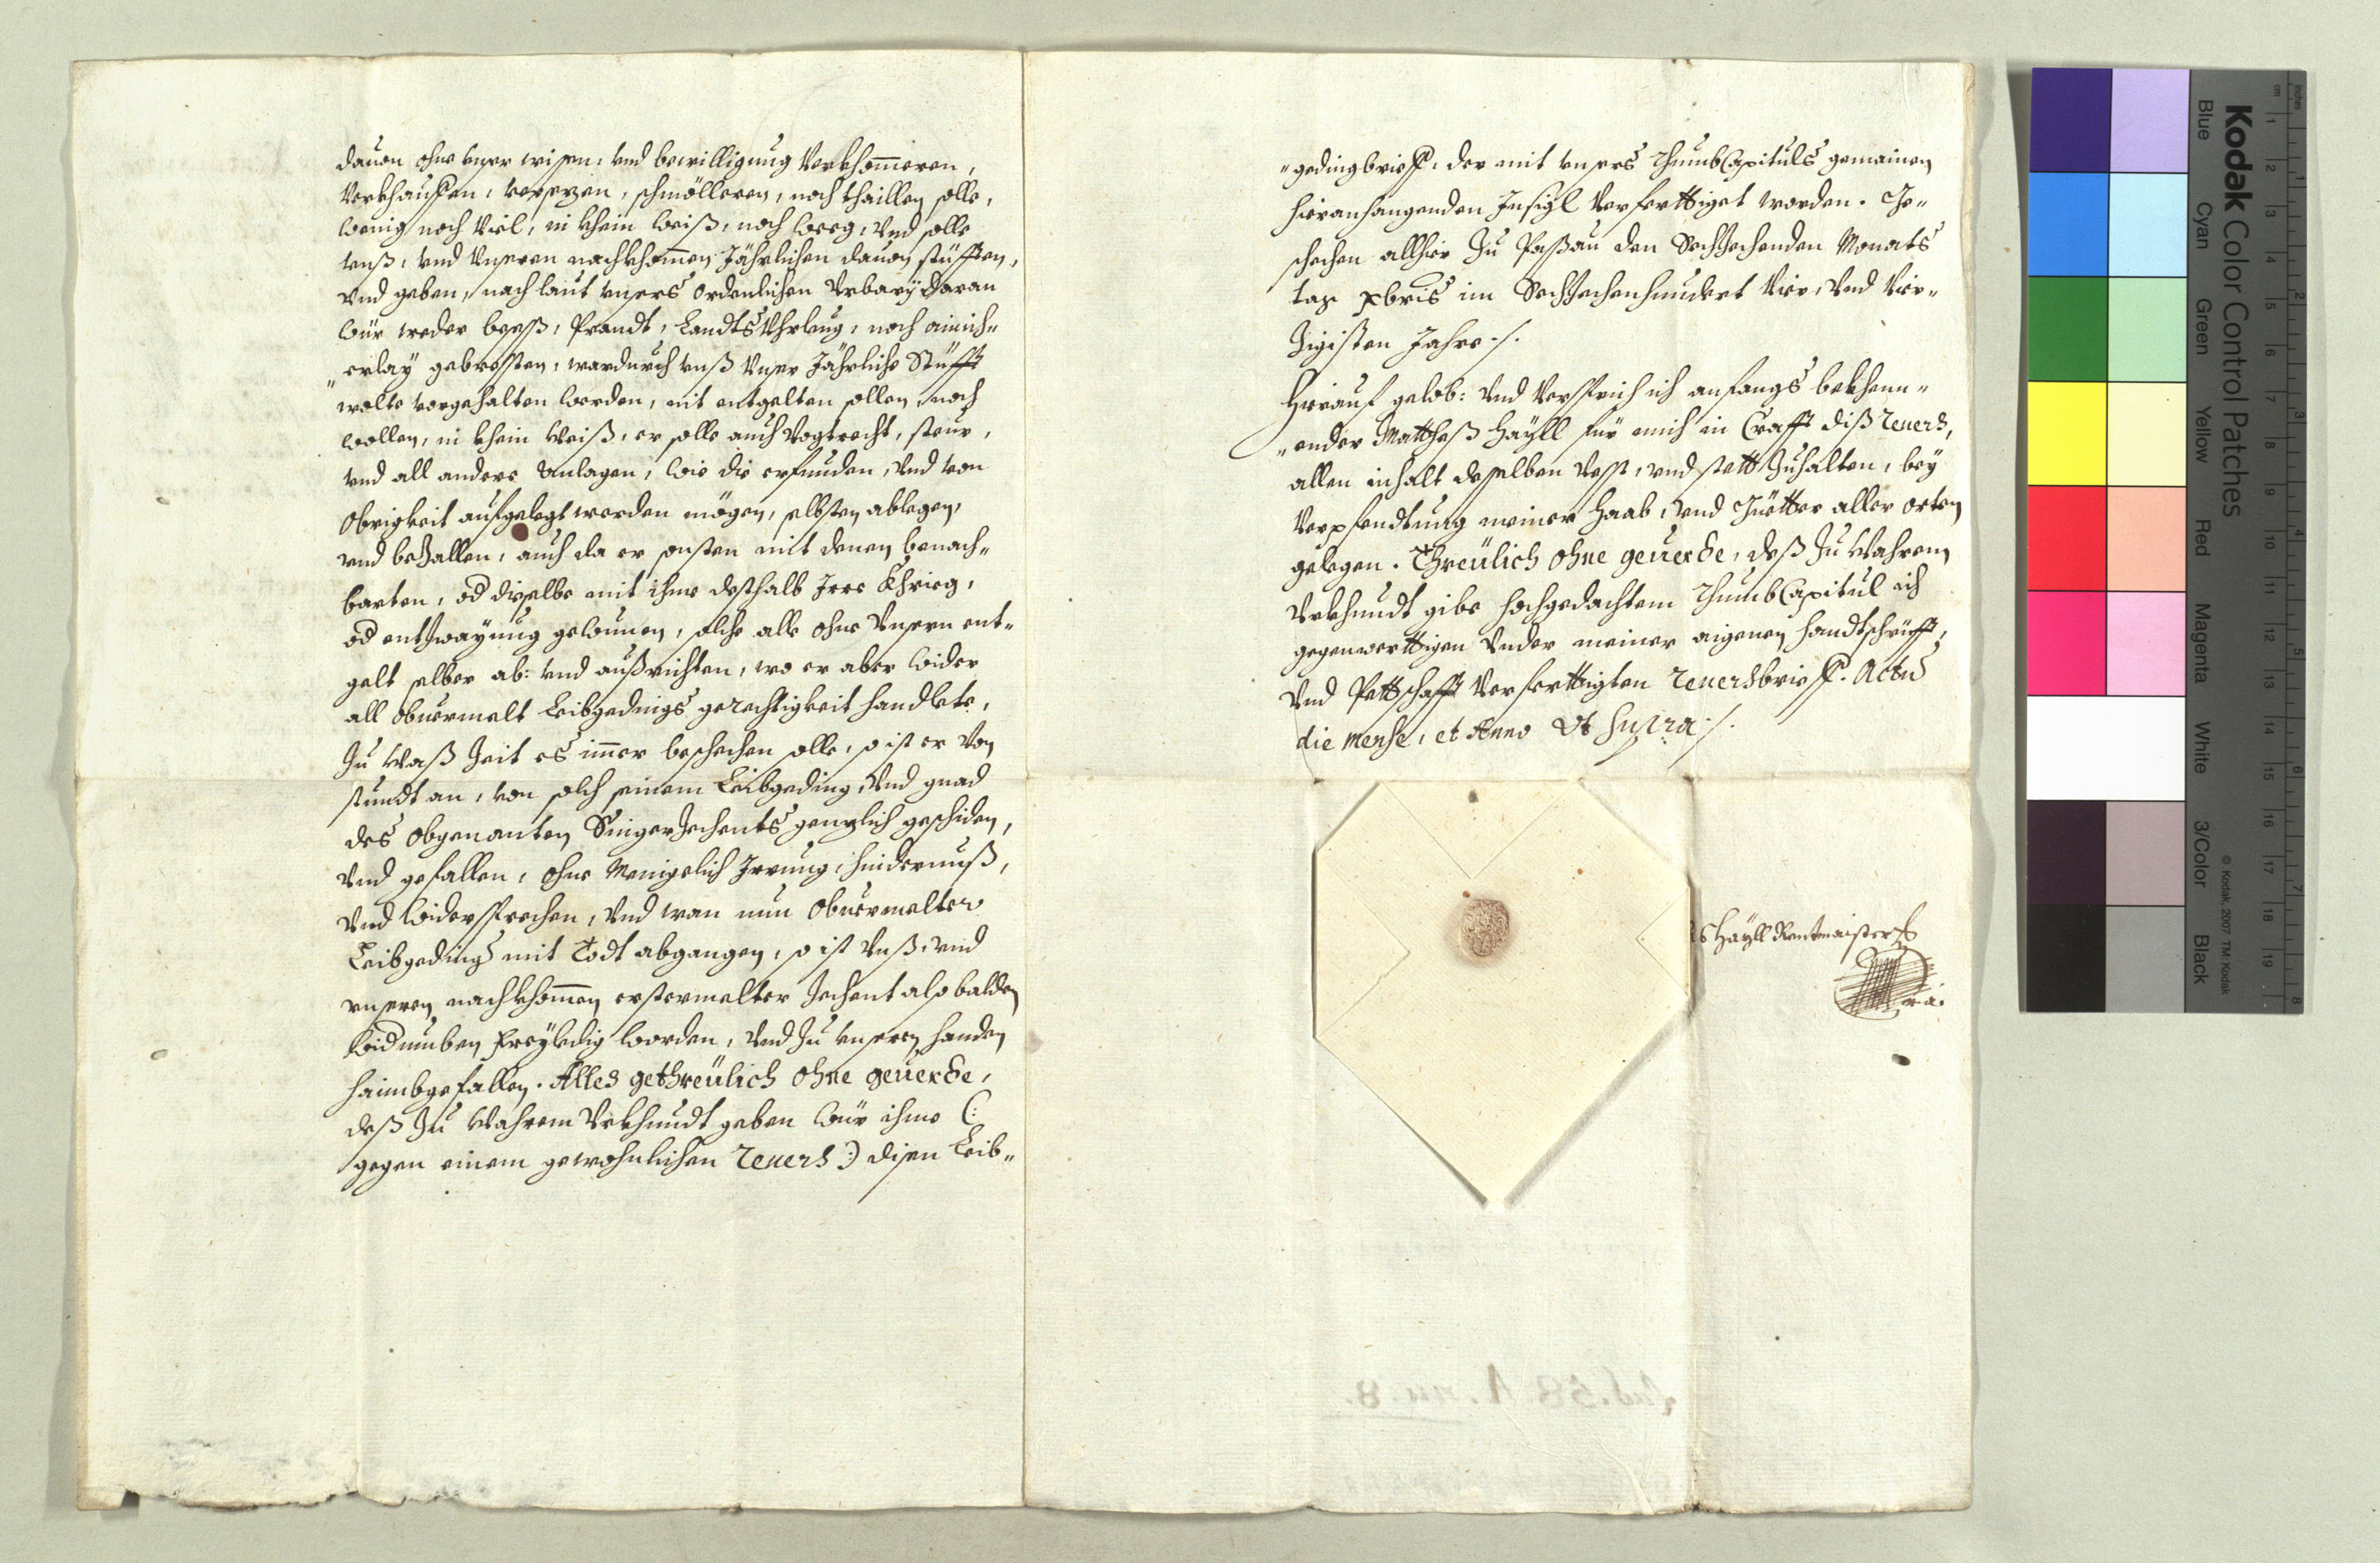 dauon ohne vnser wissen, vnd bewilligung verkhom̄eren,
verkhauffen, versezen, schmölleren, noch thaillen solle,
wenig noch viel, in khein weiß, noch weeg, vnd solle
vnß, vnd vnseren nachkhom̄en Jährlichen dauon stüfften,
vnd geben, nach laut vnsers ordenlichen Vrbary daran
wür weder beeß, Prandt, Landts Vhrleug, noch ainich„
„erlay gebresten, wardurch vnß vnser Jährliche Stüfft
wolte vorgehalten werden, nit entgelten sollen, noch
wollen, in khein weiß, er solle auch Vogtrecht, steur,
vnd all andere anlagen, wie die erfunden, vnd von
Obrigkeit aufgelegt werden mögen, selbsten ablegen,
vnd bezallen, auch da er sonsten mit denen benach„
barten, od dieselbe mit ihme desthalb Irre Khrieg,
od entzwayung gewunnen, solche alle ohne vnsern ent„
gelt selber ab: vnd außrichten, wo er aber wider
all obuermelt Leibgedings gerechtigkeit handlete,
Zu waß Zeit es im̄er beschechen solle, so ist er von
stundt an, von solch seinem Leibgeding, vnd gnad
des obgenanten Singerzechents genzlich geschiden,
vnd gefallen, ohne Menigelich Irrung, hindernuß,
vnd widersprechen, vnd wan nun obuermelter
Leibgeding mit Todt abgangen, so ist vnß, vnd
vnseren nachkhom̄en erstermelter Zechent alsobalden
widumben freyledig worden, vnd Zu vnseren handen
haimbgefallen. Alles gethreülich ohne geuerde,
deß Zu wahrem Vrkhundt geben wür ihme (:
gegen einem gewohnlichen Reuers :) disen Leib„
„gedingbrieff, der mit vnsers Thumb Capituls gemainen
hieranhangenden Insigl verferttiget worden. Ge„
schechen allhier Zu Paßau den Sechzechenden Monats
tag xbris im Sechzechenhundert Vier, vnd Vier„
Zigisten Jahre ·/.
Hierauf gelob: vnd versprich ich anfangs bekhenn„
„ender Mattheß Häyll für mich in Crafft diß Reuers,
allen inhalt desselben vesst, vnd stett Zuhalten, bey
verpfendtung meiner Haab, vnd Güetter aller orten
gelegen. Threülich ohne geuerde, deß Zu wahrem
Vrkhundt gibe hochgedachtem Thumb Capitul ich
gegenwerttigen vnder meiner aigenen handtschrüfft,
vnd Pettschafft verferttigten Reuersbrieff. Actu
die mense, et Anno Vt supra ·/.
s Häyll Rentmaister